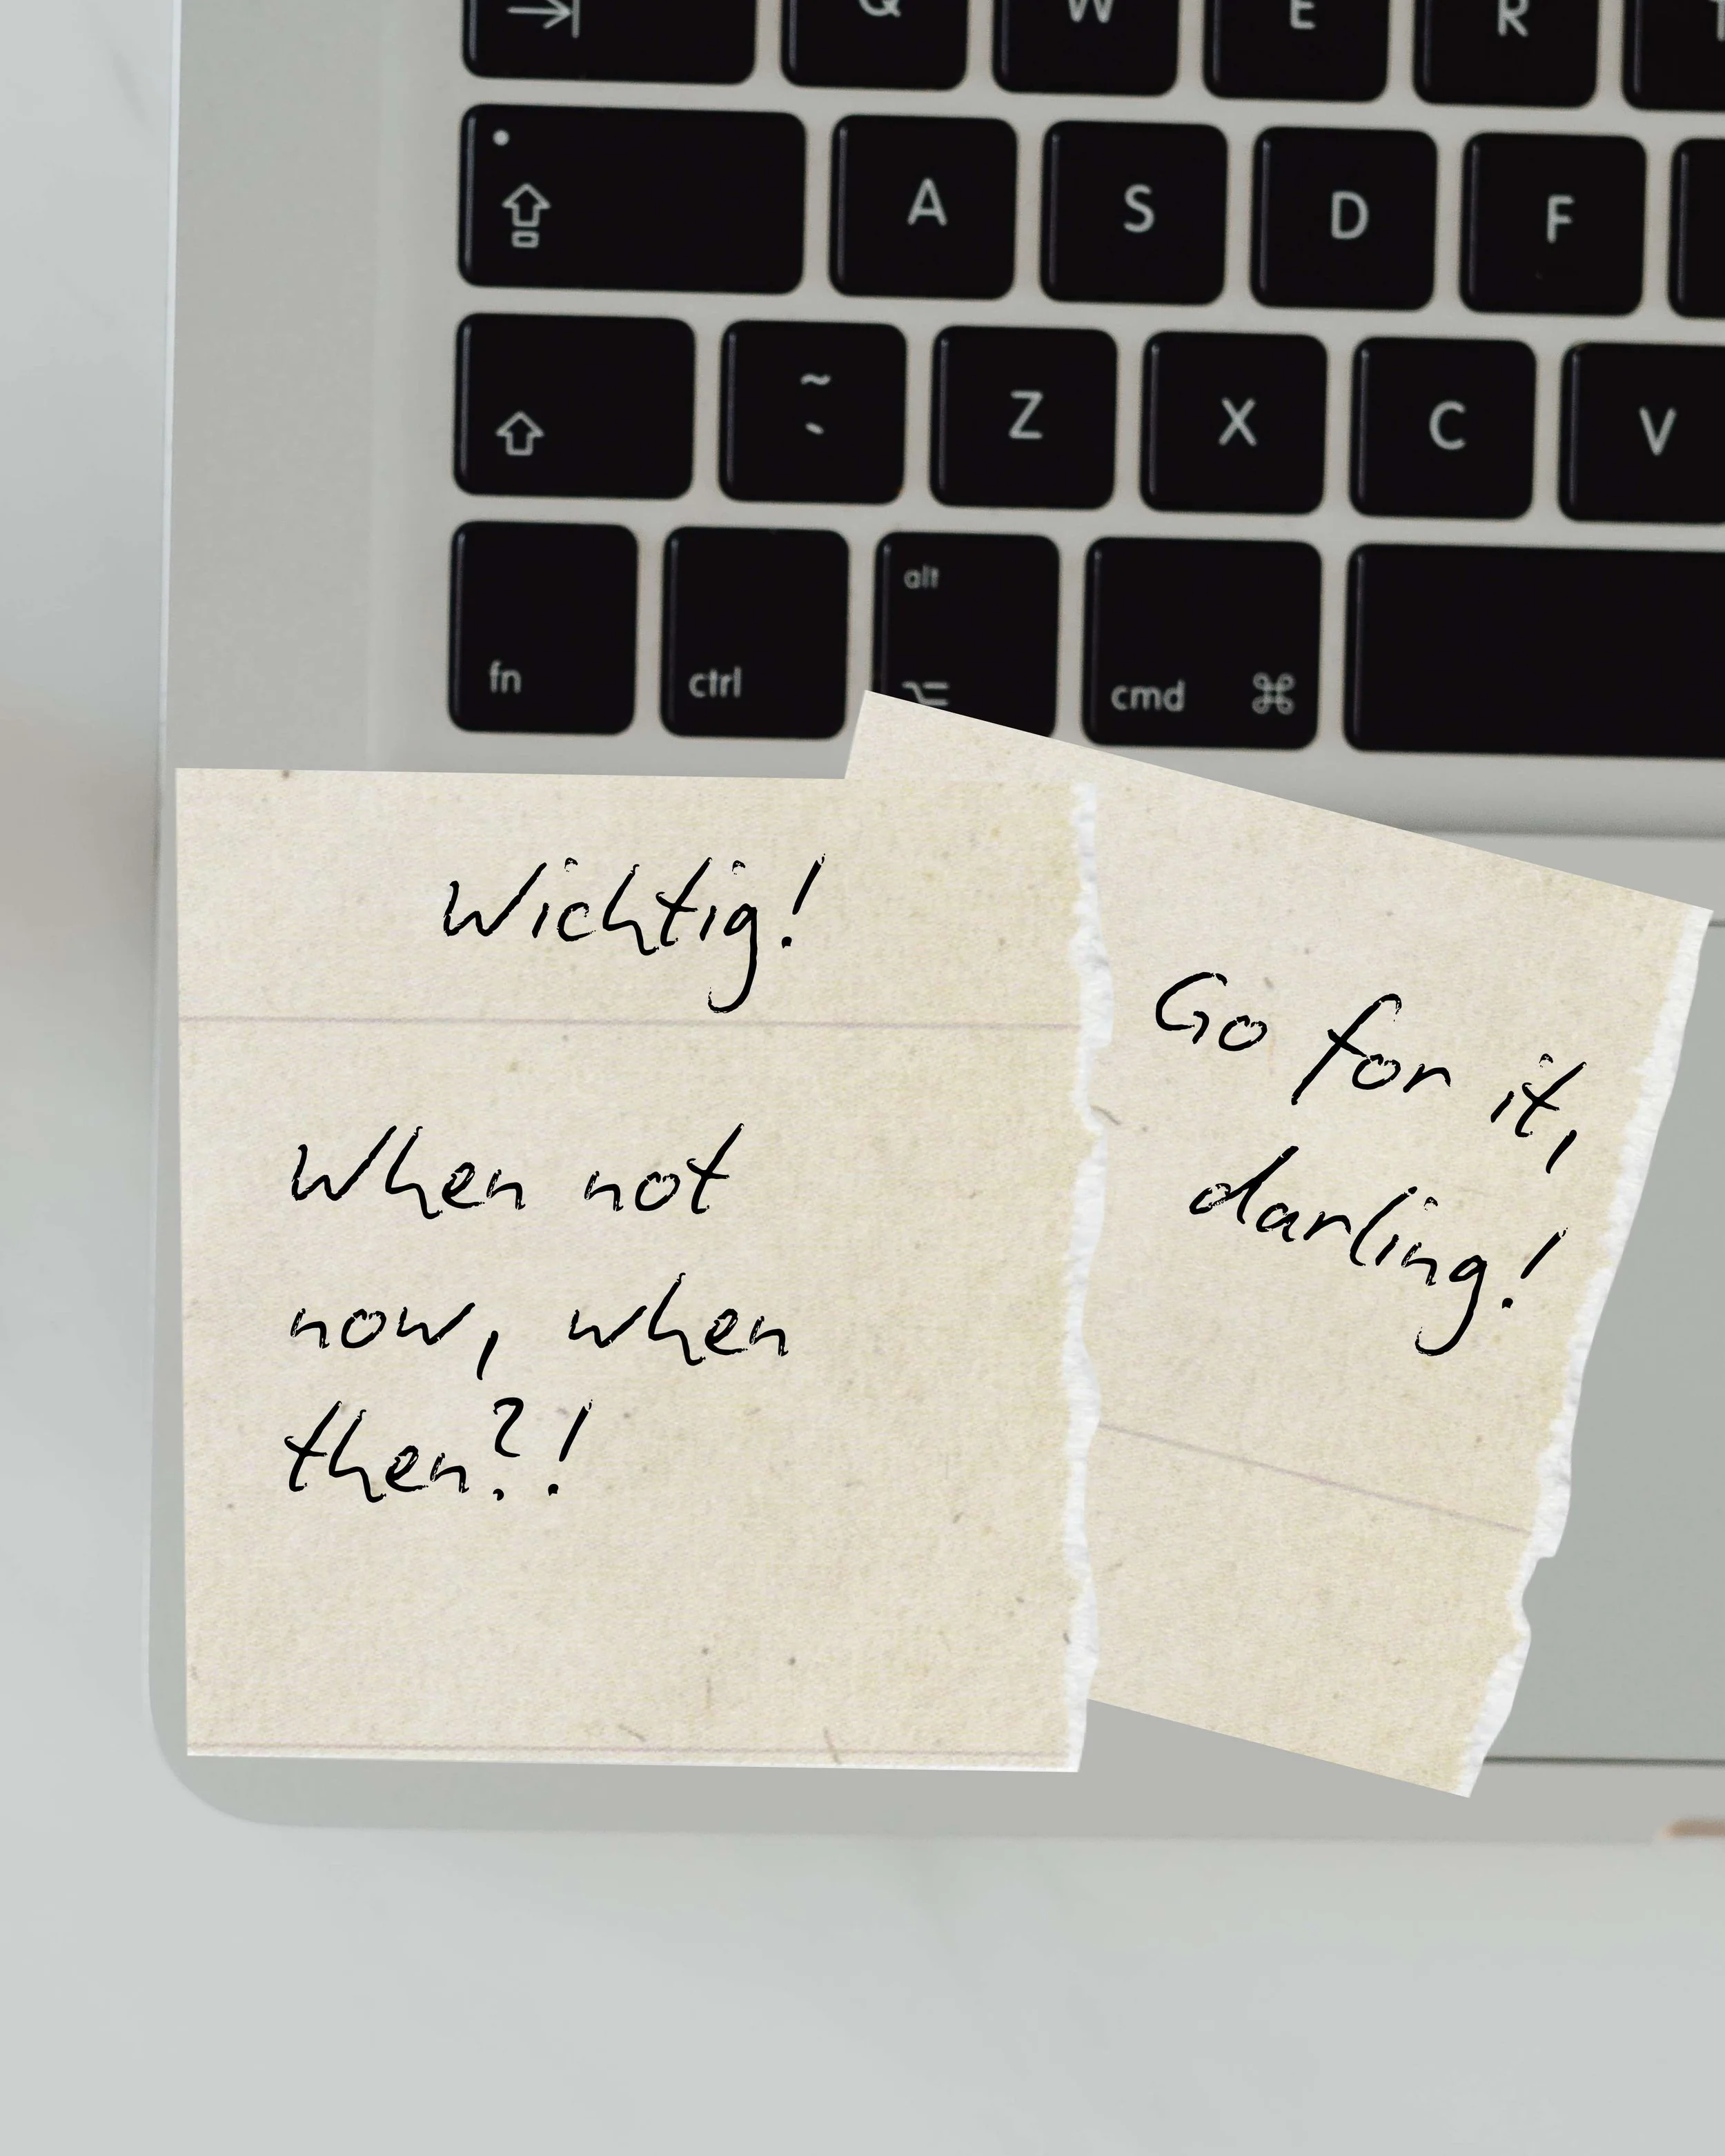 Q W E R
A S D F
~
` Z X C V
alt
fn ctrl ⌥ cmd ⌘
Wichtig!
When not
now, when
then?!
Go for it,
darling!